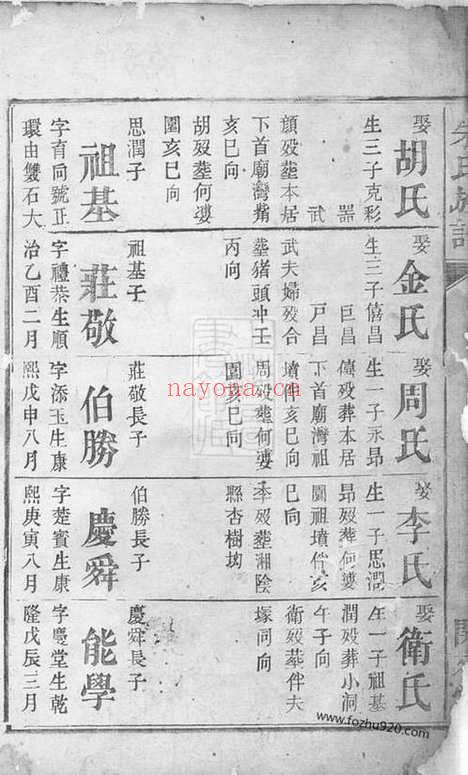 氏族譜
娶胡氏
生三子克彩
器
武
顔歿葬本居
下首廟灣觜
亥巳向
胡歿葬何婆
園亥巳向
思潤子
祖基
字育同號正
環由雙石大
娶金氏
生三子僖昌
巨昌
戸昌
武夫婦歿合
葬猪頭冲壬
丙向
祖基子
莊敬
字禮恭生順
治乙酉二月
娶周氏
生一子永昂
僖歿葬本居
下首廟灣祖
墳伴亥巳向
周歿葬何婆
園亥巳向
莊敬長子
伯勝
字添玉生康
熙戊申八月
娶李氏
生一子思潤
昂歿葬何婆
園祖墳伴亥
巳向
李歿葬湘陰
縣杏樹坳
伯勝長子
慶舜
字楚賓生康
熙庚寅八月
娶衛氏
生一子祖基
潤歿葬小洞
午子向
衛歿葬伴夫
塚同向
慶舜長子
能學
字慶堂生乾
隆戊辰三月
nayona.cn
www.fozhu920.com